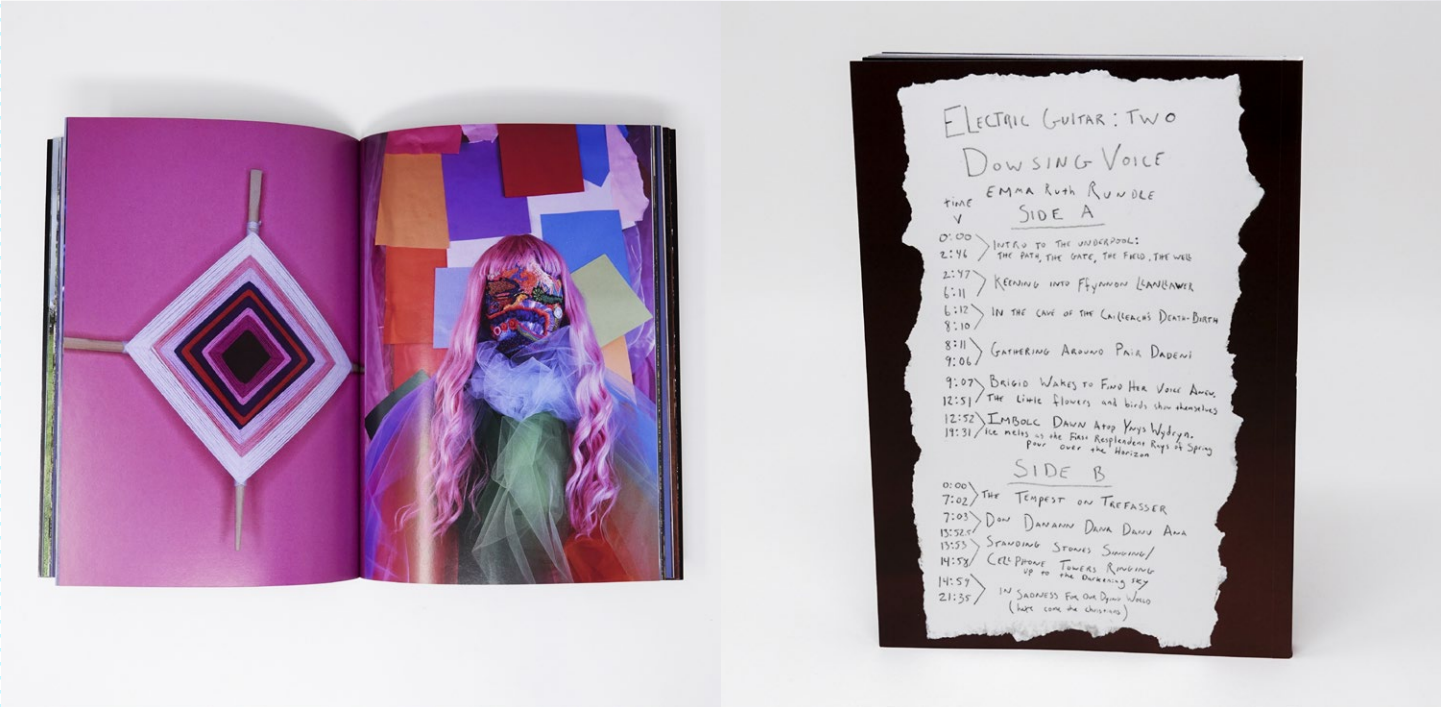 ELECTRIC GUITAR: TWO
DOWSING VOICE
EMMA RUTH RUNDLE
time
V
SIDE A
0:00
2:46
INTRO TO THE UNDERPOOL:
THE PATH, THE GATE, THE FIELD, THE WELL
2:47
6:11
KEENING INTO FFYNNON LLANLLAWER
6:12
8:10
IN THE CAVE OF THE CAILLEACH'S DEATH-BIRTH
8:11
9:06
GATHERING AROUND PAIR DADENI
9:07
12:51
BRIGID WAKES TO FIND HER VOICE ANEW.
THE little flowers and birds show themselves
12:52
19:31
IMBOLC DAWN ATOP YNYS WYDRYN.
ICE melts as the First Resplendent Rays of Spring
Pour over the Horizon
SIDE B
0:00
7:02
THE TEMPEST ON TREFASSER
7:03
13:52
DON DANANN DANA DANU ANA
13:53
14:58
STANDING STONES SINGING/
CELLPHONE TOWERS RINGING
up to the Darkening sky
14:59
21:35
IN SADNESS FOR OUR DYING WORLD
(here come the christians)